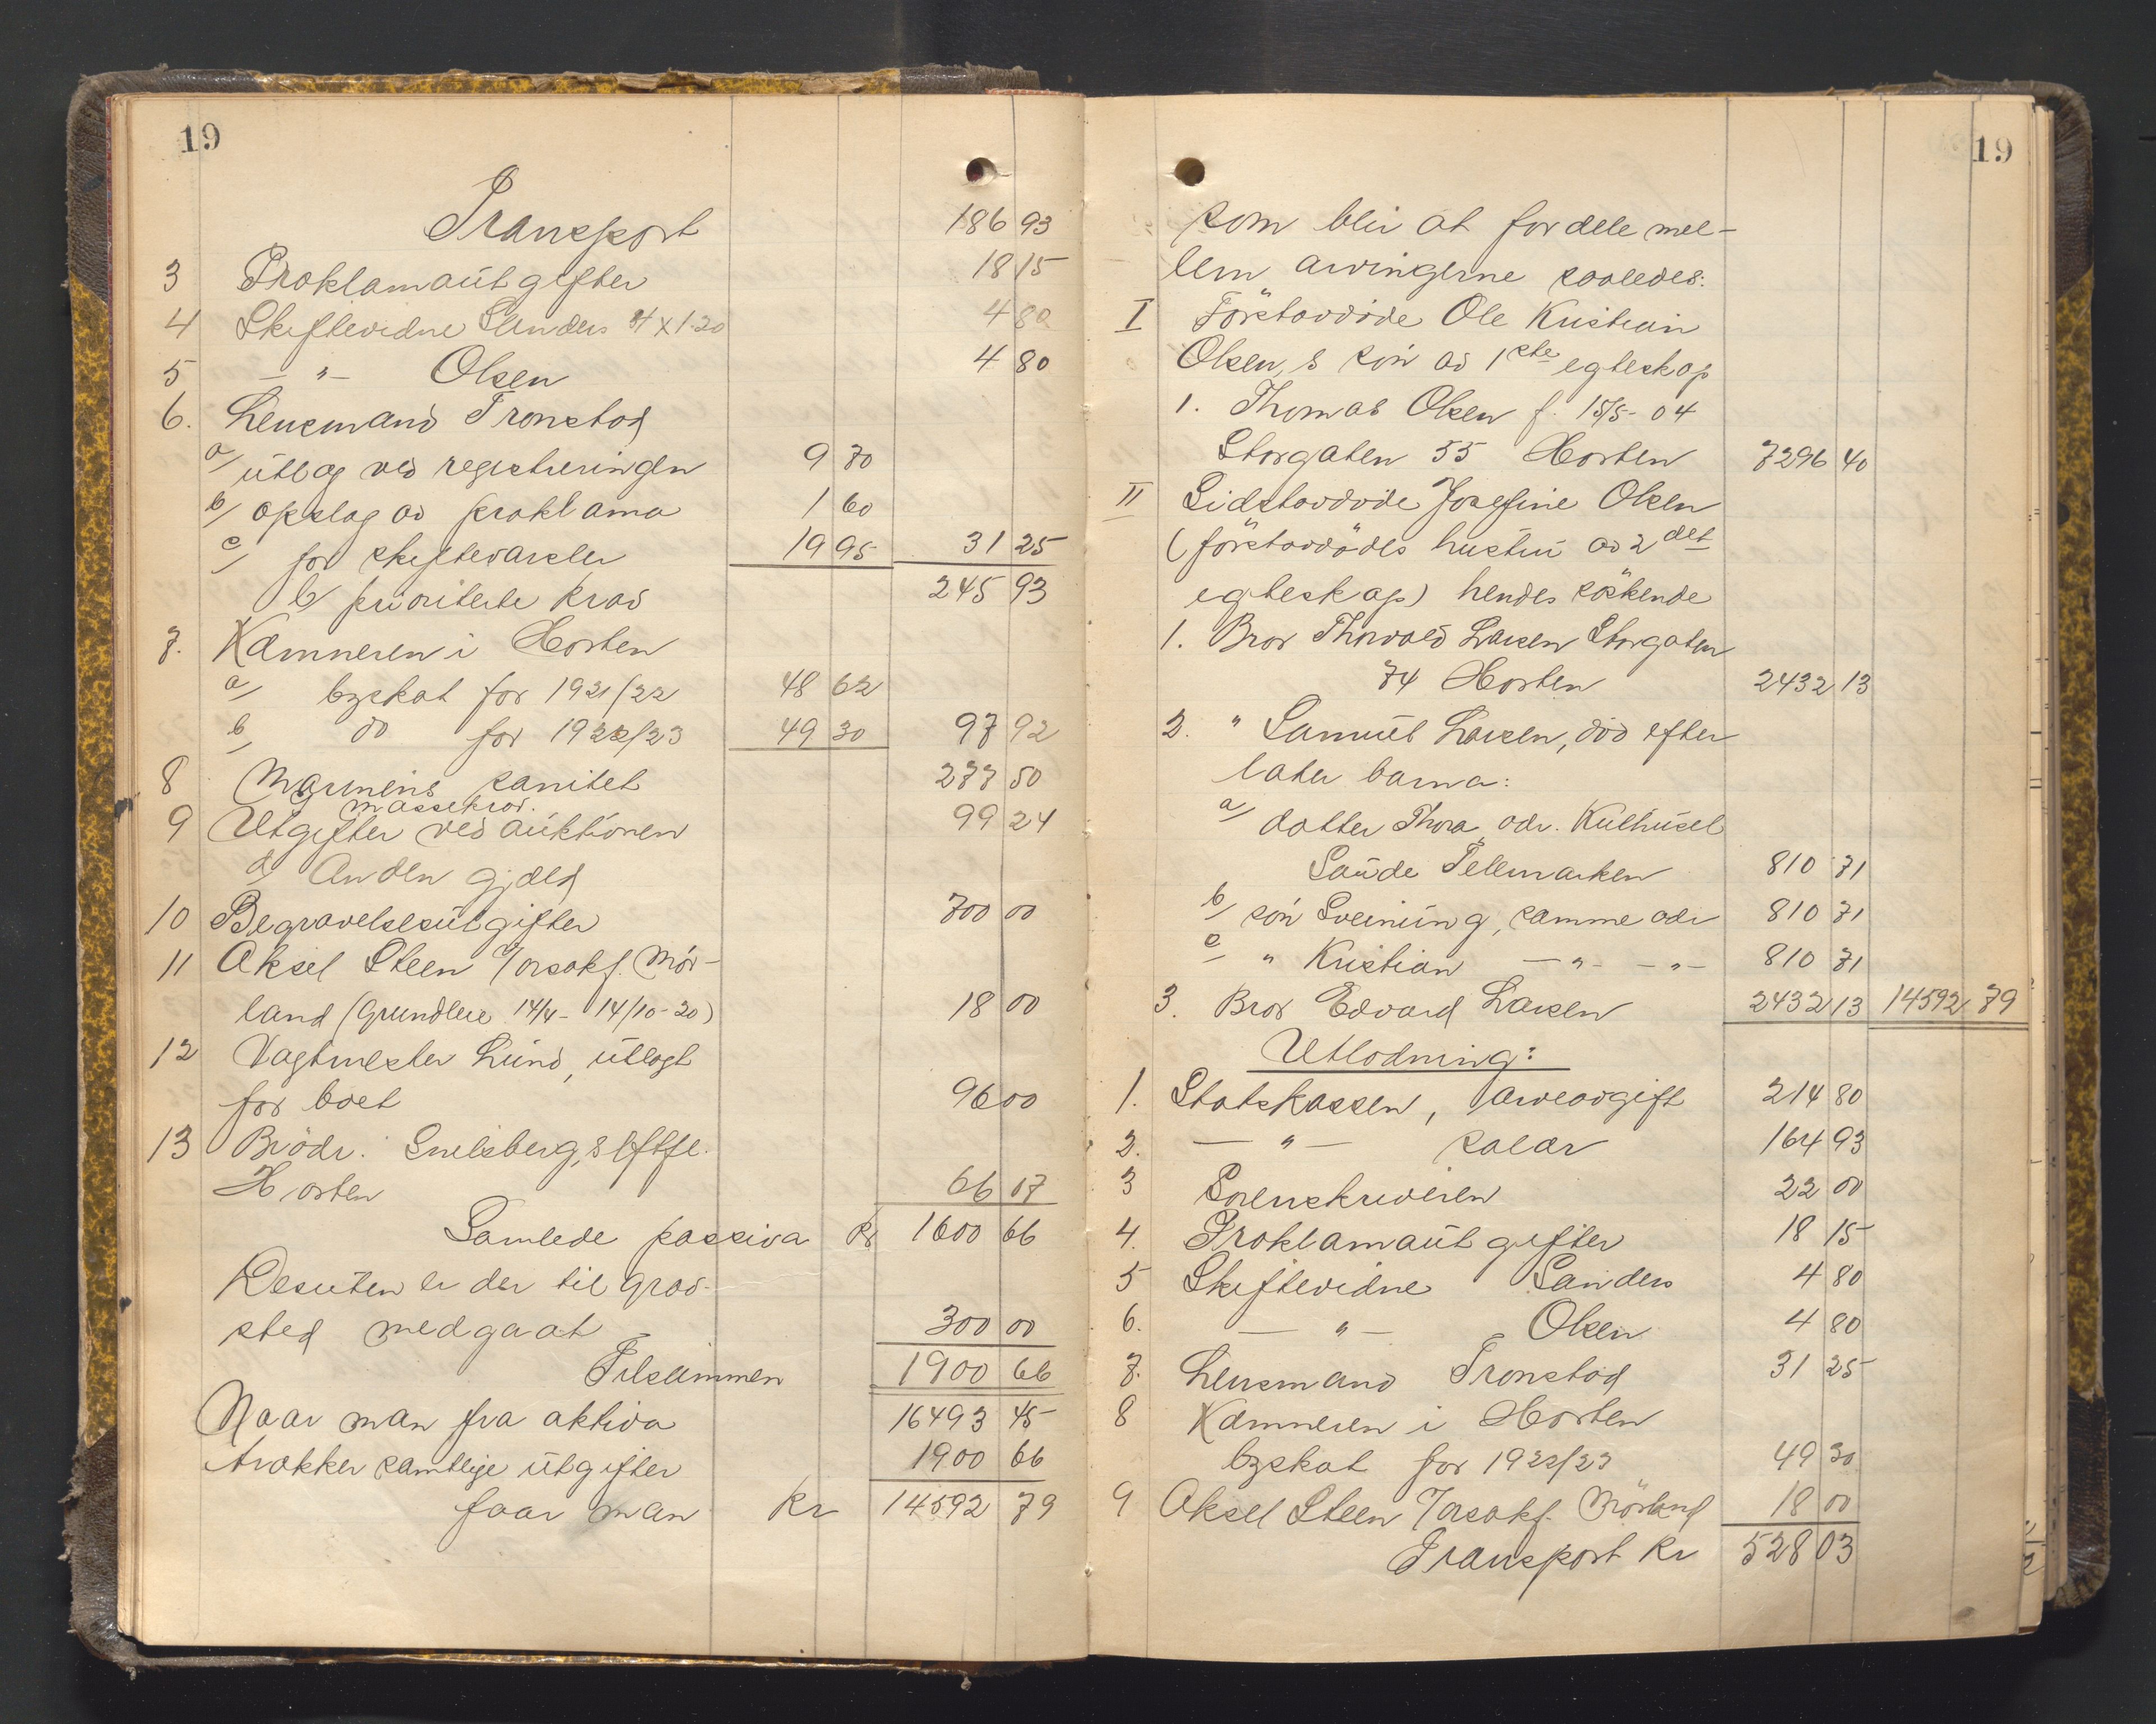 19
Transport 186 93
3 Proklamautgifter 18 15
4 Skiftevidne Sanders 4 x 1.20 4 80
5 — " — Olsen 4 80
6. Lensmand Tronstad
a/ utlæg ved registreringen 9 70
b/ opslag av proklama 1 60
c/ for skiftevarsler 19 95 31 25
b/ prioriterte krav 245 93
7. Kæmneren i Horten
a/ byskat for 1921/22 48 62
b/ do for 1922/23 49 30 97 92
8 Marinens sanitet 277 50
massekrav.
9 Utgifter ved auktionen 99 24
d/ Anden gjæld
10 Begravelsesutgifter 700 00
11 Aksel Steen Torsakf. Mör-
land (Grundleie 14/4 - 14/10-20) 18 00
12 Vagtmester Lund, utlagt
for boet 96 00
13 Brödr. Snelsberg,s Eftfl.
Horten 66 07
Samlede passiva kr 1600 66
Desuten er der til grav-
sted medgaat 300 00
Tilsammen 1900 66
Naar man fra aktiva 16493 45
trækker samtlige utgifter 1900 66
faar man kr 14592 79
19
som blir at fordele mel-
lem arvingerne saaledes:
I Förstavdöde Ole Kristian
Olsen,s sön av 1ste egteskap
1. Thomas Olsen f. 15/5-04
Storgaten 55 Horten 7296 40
II Sidstavdöde Josefine Olsen
(förstavdödes hustru av 2det
egteskap) hendes söskende
1. Bror Thorvald Larsen Storgaten
74 Horten 2432 13
2. " Samuel Larsen, död efter
later barna:
a/ datter Thora, adr. Kulhuset
Saude Telemarken 810 71
b/ sön Sveinung, samme adr 810 71
c/ " Kristian — " — — " — 810 71
3. Bror Edvard Larsen 2432 13 14592 79
Utlodning:
1. Statskassen, arveavgift 214 80
2. — " — salær 164 93
3 Sorenskriveren 22 00
4. Proklamautgifter 18 15
5 Skiftevidne Sanders 4 80
6. — " — Olsen 4 80
7. Lensmand Tronstad 31 25
8 Kæmneren i Horten
byskat for 1922/23 49 30
9 Aksel Steen Torsakf. Mörland 18 00
Transport kr 528 03